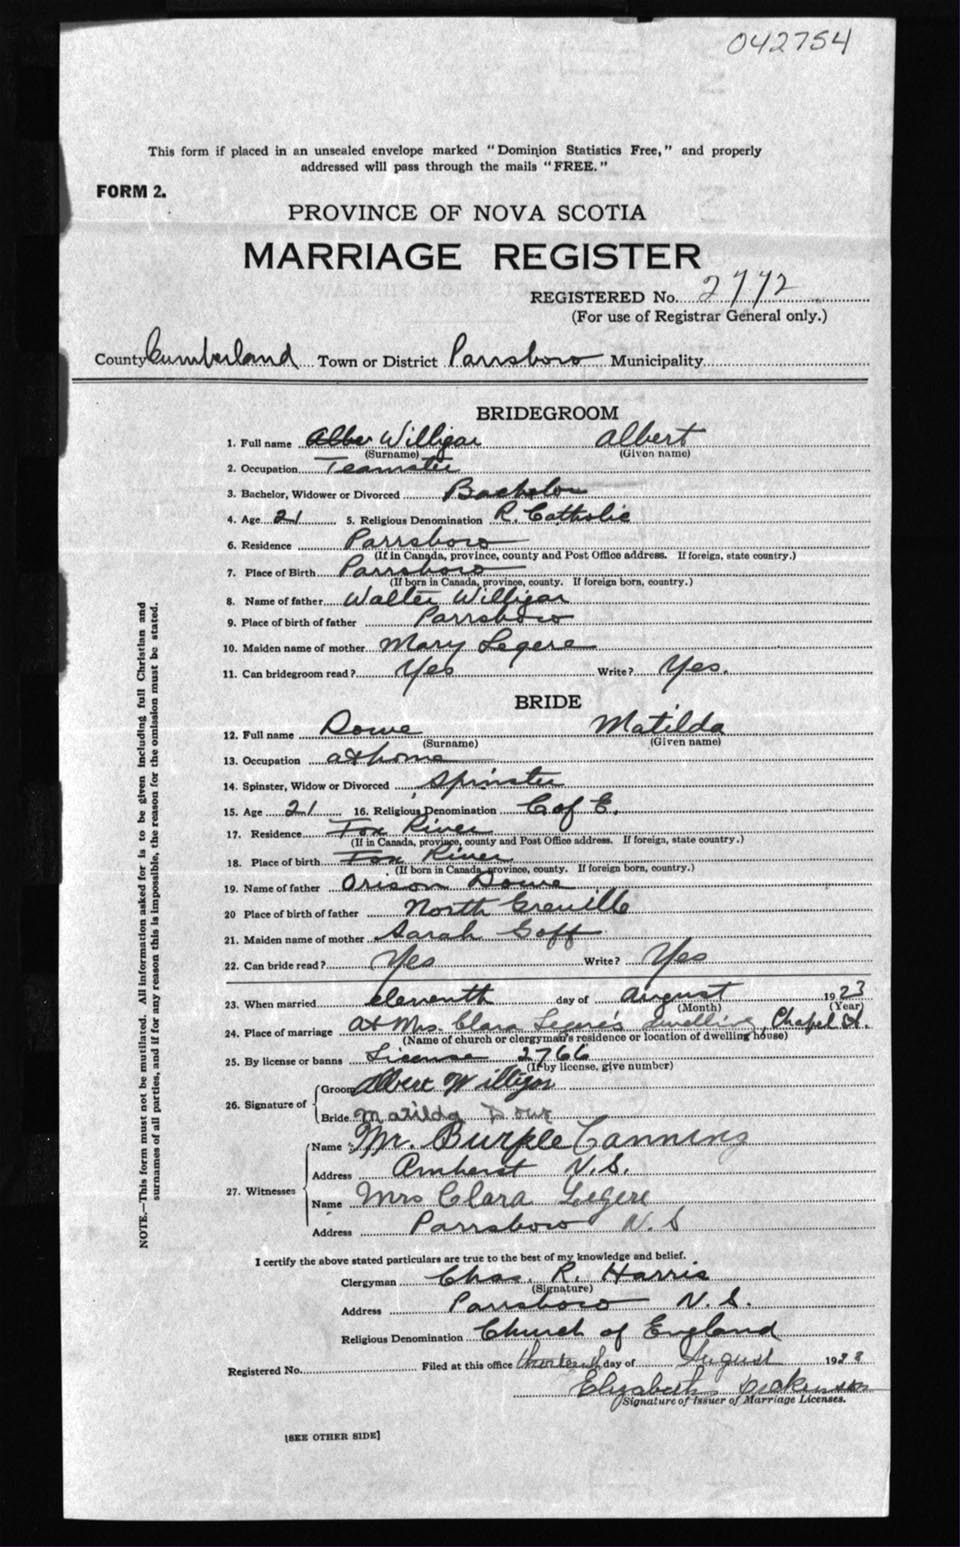 042754
This form if placed in an unsealed envelope marked "Dominion Statistics Free," and properly
addressed will pass through the mails "FREE."
FORM 2.
PROVINCE OF NOVA SCOTIA
MARRIAGE REGISTER
REGISTERED No. 2772
(For use of Registrar General only.)
County Cumberland Town or District Parrsboro Municipality
BRIDEGROOM
1. Full name Willigar Albert
(Surname) (Given name)
2. Occupation Teamster
3. Bachelor, Widower or Divorced Bachelor
4. Age 21 5. Religious Denomination R. Catholic
6. Residence Parrsboro
(If in Canada, province, county and Post Office address. If foreign, state country.)
7. Place of Birth Parrsboro
(If born in Canada, province, county. If foreign born, country.)
8. Name of father Walter Willigar
9. Place of birth of father Parrsboro
10. Maiden name of mother Mary Legere
11. Can bridegroom read? Yes Write? Yes.
BRIDE
12. Full name Dowe Matilda
(Surname) (Given name)
13. Occupation at home
14. Spinster, Widow or Divorced Spinster
15. Age 21 16. Religious Denomination C of E.
17. Residence Fox River
(If in Canada, province, county and Post Office address. If foreign, state country.)
18. Place of birth Fox River
(If born in Canada province, county. If foreign born, country.)
19. Name of father Orison Dowe
20 Place of birth of father North Greville
21. Maiden name of mother Sarah Goff
22. Can bride read? Yes Write? Yes
23. When married eleventh day of August 1923
(Month) (Year)
24. Place of marriage At Mrs. Clara Legere's dwelling, Chapel St.
(Name of church or clergyman's residence or location of dwelling house)
25. By license or banns License 2766
(If by license, give number)
26. Signature of
Groom Albert Willigar
Bride Matilda Dowe
27. Witnesses
Name Mr. Burple Canning
Address Amherst N.S.
Name Mrs Clara Legere
Address Parrsboro N.S
I certify the above stated particulars are true to the best of my knowledge and belief.
Clergyman Chas. R. Harris
(Signature)
Address Parrsboro N.S.
Religious Denomination Church of England
Registered No. Filed at this office thirteenth day of August 192
Elizabeth
Signature of Issuer of Marriage Licenses.
[SEE OTHER SIDE]
NOTE.—This form must not be mutilated. All information asked for is to be given including full Christian and
surnames of all parties, and if for any reason this is impossible, the reason for the omission must be stated.